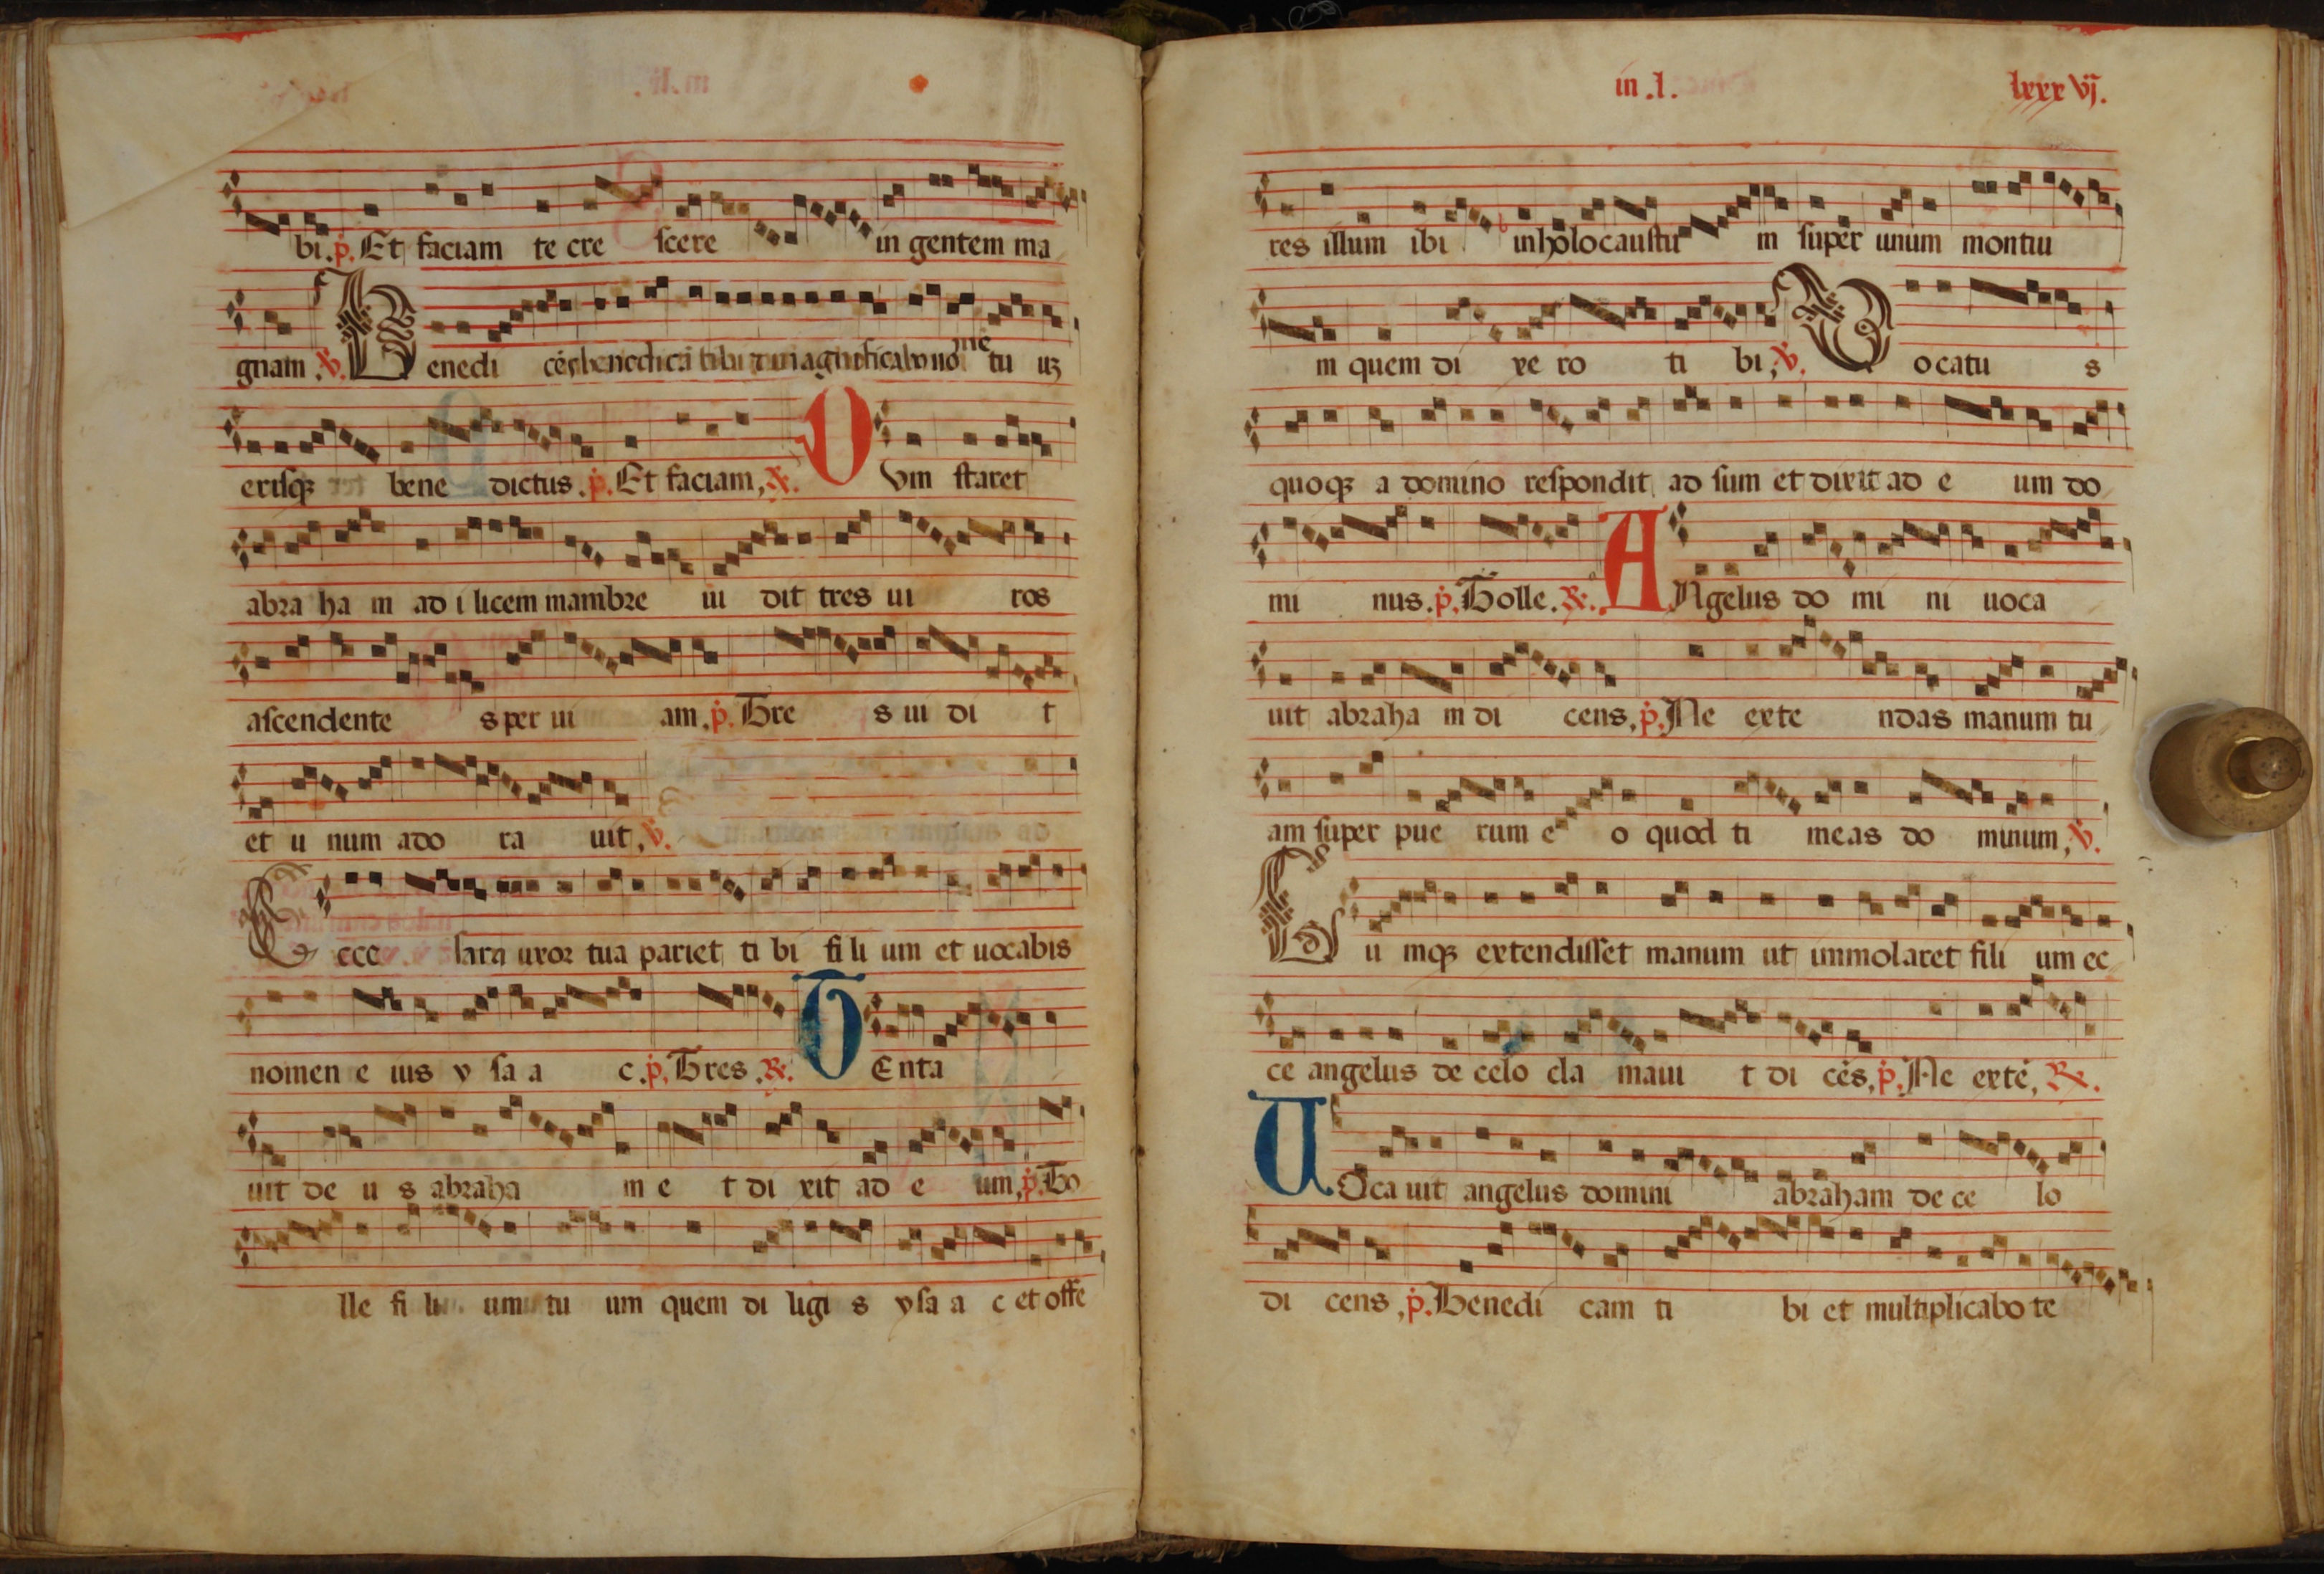 bi. p. Et faciam te cre scere in gentem ma
gnam. v. Benedi cēs benedicā tibi et magnificabo nomē tu uʒ
erisqʒ bene dictus. p. Et faciam, R. Dum staret
abra ha m ad i licem mambre ui dit tres ui ros
ascendente s per ui am. p. Tre s ui di t
et u num ado ra uit, v.
Ecce sara uxor tua pariet ti bi fi li um et uocabis
nomen e ius y sa a c. p. Tres. R. TEnta
uit de u s abraha m e t di xit ad e um, p. To
lle fi li um tu um quem di ligi s ysa a c et offe
in .l. lxxxvj.
res illum ibi in holocaustū m super unum montiu
m quem di xe ro ti bi, v. Vocatu s
quoqʒ a domino respondit ad sum et dixit ad e um do
mi nus. p. Tolle. R. ANgelus do mi ni uoca
uit abraha m di cens, p. Ne exte ndas manum tu
am super pue rum e o quod ti meas do minum, v.
Cu mqʒ extendisset manum ut immolaret fili um ec
ce angelus de celo cla maui t di cēs, p. Ne extē, R.
UOca uit angelus domini abraham de ce lo
di cens, p. Benedi cam ti bi et multiplicabo te